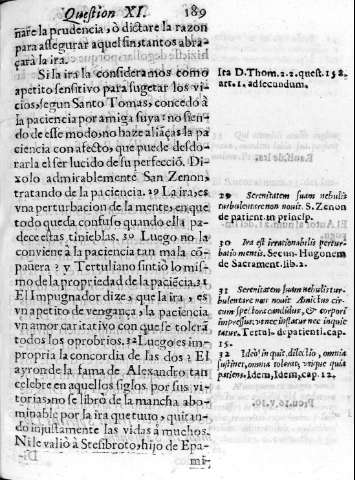 Question XI. 189
ñare la prudencia, ò dictare la razon
para assegurar aquel fin, tantos abra-
çarà la ira.
Si la ira la consideramos como
apetito sensitivo para sugetar los vi-
cios, segun Santo Tomas, concedo à
la paciencia por amiga suya: no sien-
do de esse modo, no haze aliãças la pa
ciencia con afecto, que puede desdo-
rarla el ser lucido de su perfecció. Di-
xolo admirablemente San Zenon,
tratando de la paciencia. 29 La ira, es
vna perturbacion de la mente, en que
todo queda confuso quando ella pa-
dece estas tinieblas. 30 Luego no la
conviene à la paciencia tan mala cõ-
pañera? y Tertuliano sintiò lo mis-
mo de la propriedad de la paciécia. 31
El Impugnador dize, que la ira, es
vn apetito de vengança, y la paciencia
vn amor caritativo con que se tolerã
todos los oprobrios. 32 Luego es im-
propria la concordia de las dos? El
ayron de la fama de Alexandro tan
celebre en aquellos siglos por sus vi-
torias, no se librò de la mancha abo-
minable por la ira que tuvo, quitan-
do injustamente las vidas à muchos.
Ni le valiò à Stesibroto, hijo de Epa-
mi-
Ira D. Thom. 2. 2. quest. 158.
art. 1. ad secundum.
29 Serenitatem suam nebulis
turbulentæ non novit. S. Zenon
de patient. in princip.
30 Ira est irrationabilis pertur-
batio mentis. Secus. Hugonem
de Sacrament. lib. 2.
31 Serenitatem suam nebulis tur-
bulentare nos novit Amictus cir-
cum pectora candidus, & corpori
impressus, vt nec inflatur nec inquie
tatur. Tertul. de patienti. cap.
15.
32 Ideò in quit, dilectio, omnia
sustinet, omnia tolerat, vtique quia
patiens. Idem, Idem, cap. 12.